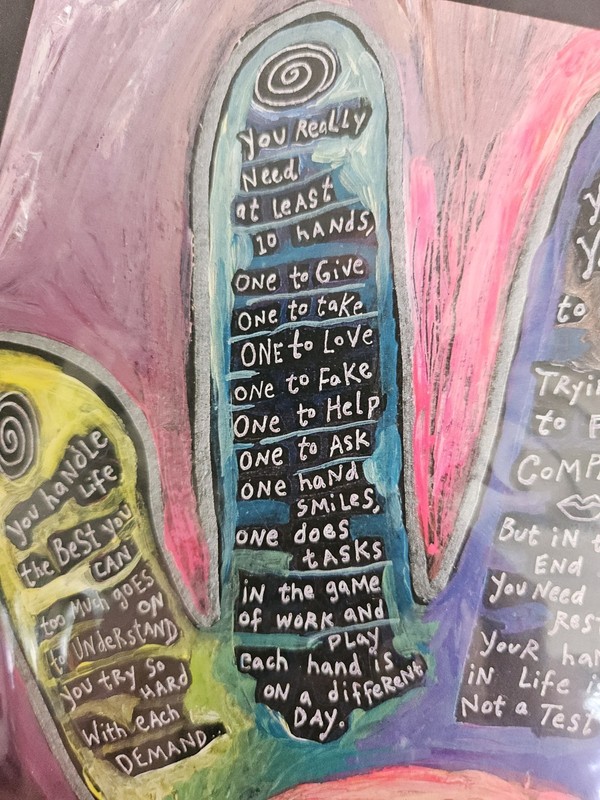 you handle
Life
the Best you
CAN
too Much goes
ON
to UNdeRstAND
you try So
HARD
With eAch
DEMAND...
you ReaLLy
Need
at LeAst
10 hANds,
ONe to Give
ONe to take
ONE to Love
ONe to FaKe
ONe to HeLp
ONe to ASk
ONe hANd
SMiLes,
ONe does
tASKS
iN the gAMe
of woRK ANd
PLAY
each hand is
ON a diffeReNt
DAY.
to
to F
But iN t
END
You Need
Rest
YouR haN
iN Life is
Not a Test